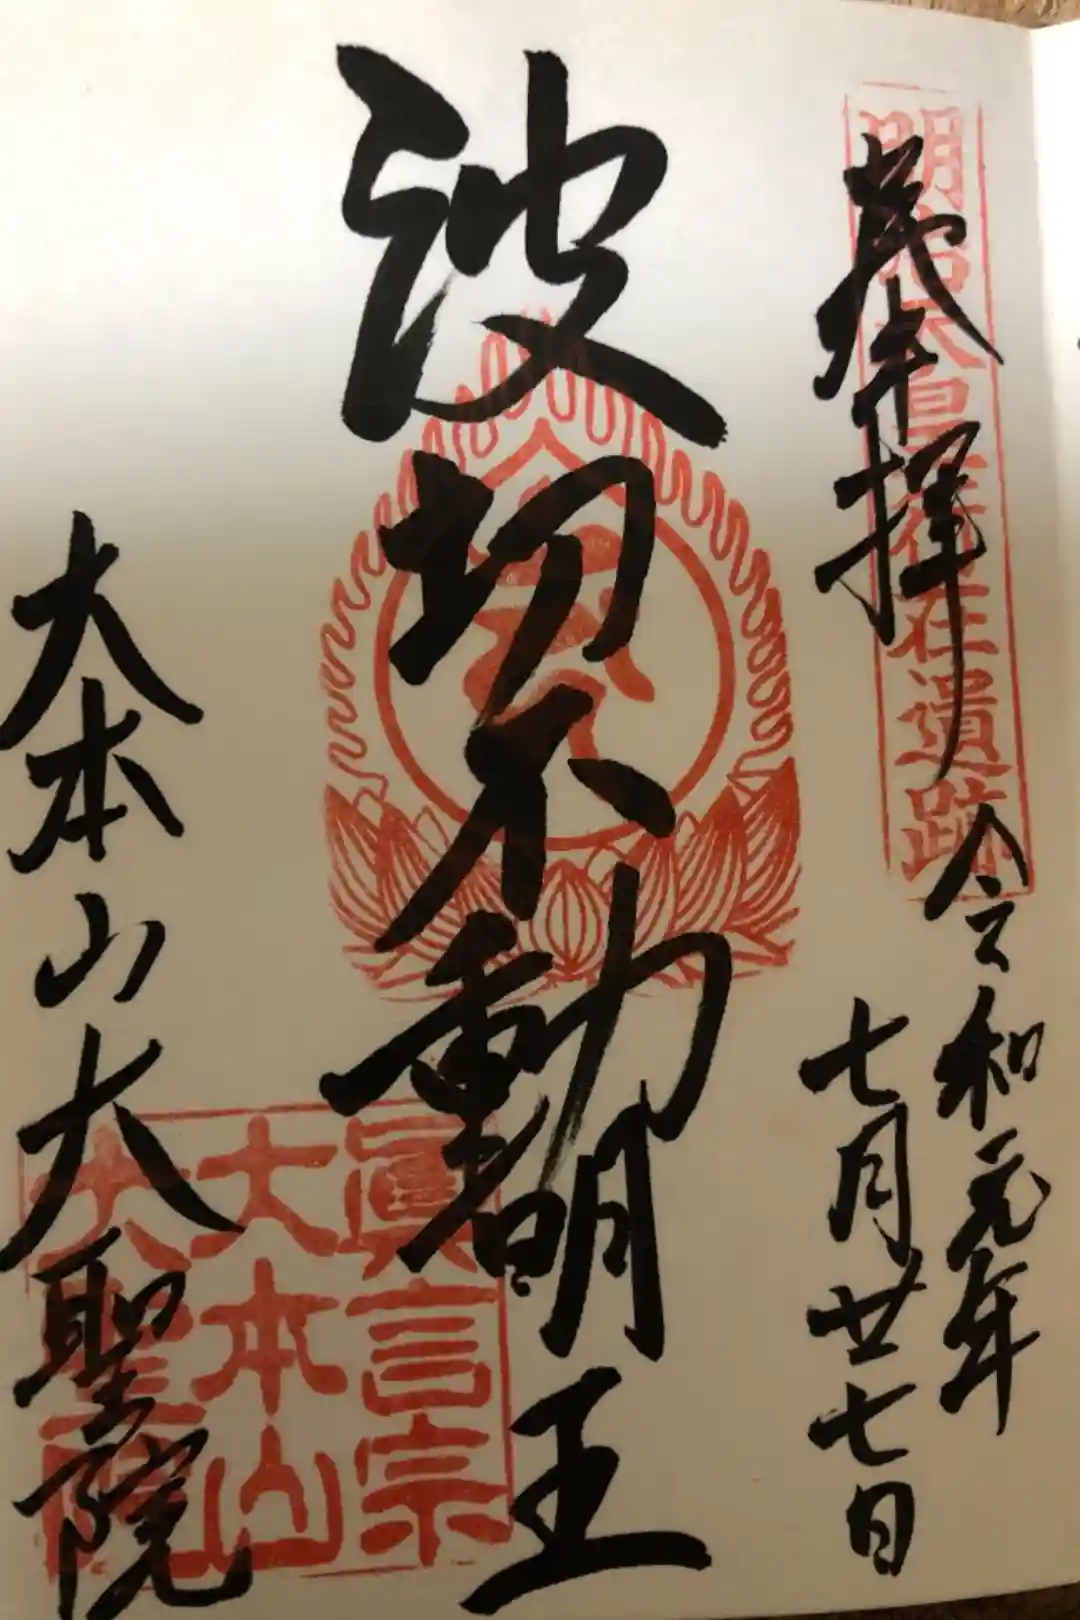 奉拝
明治天皇行在遺跡
令和元年
七月廿七日
波切不動明王
大本山大聖院
眞言宗
大本山
大聖院